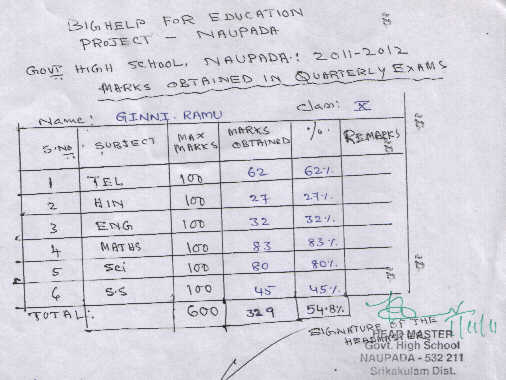 BIGHELP FOR EDUCATION
PROJECT - NAUPADA
GOVT HIGH SCHOOL, NAUPADA: 2011-2012
MARKS OBTAINED IN QUARTERLY EXAMS
Name: GINNI. RAMU Class: X
S.No SUBJECT MAX MARKS MARKS OBTAINED % REMARKS
1 TEL 100 62 62%
2 HIN 100 27 27%
3 ENG 100 32 32%
4 MATHS 100 83 83%
5 Sci 100 80 80%
6 S.S 100 45 45%
TOTAL: 600 329 54.8%
SIGNATURE OF THE
HEADMASTER
HEAD MASTER
Govt. High School
NAUPADA - 532 211
Srikakulam Dist.